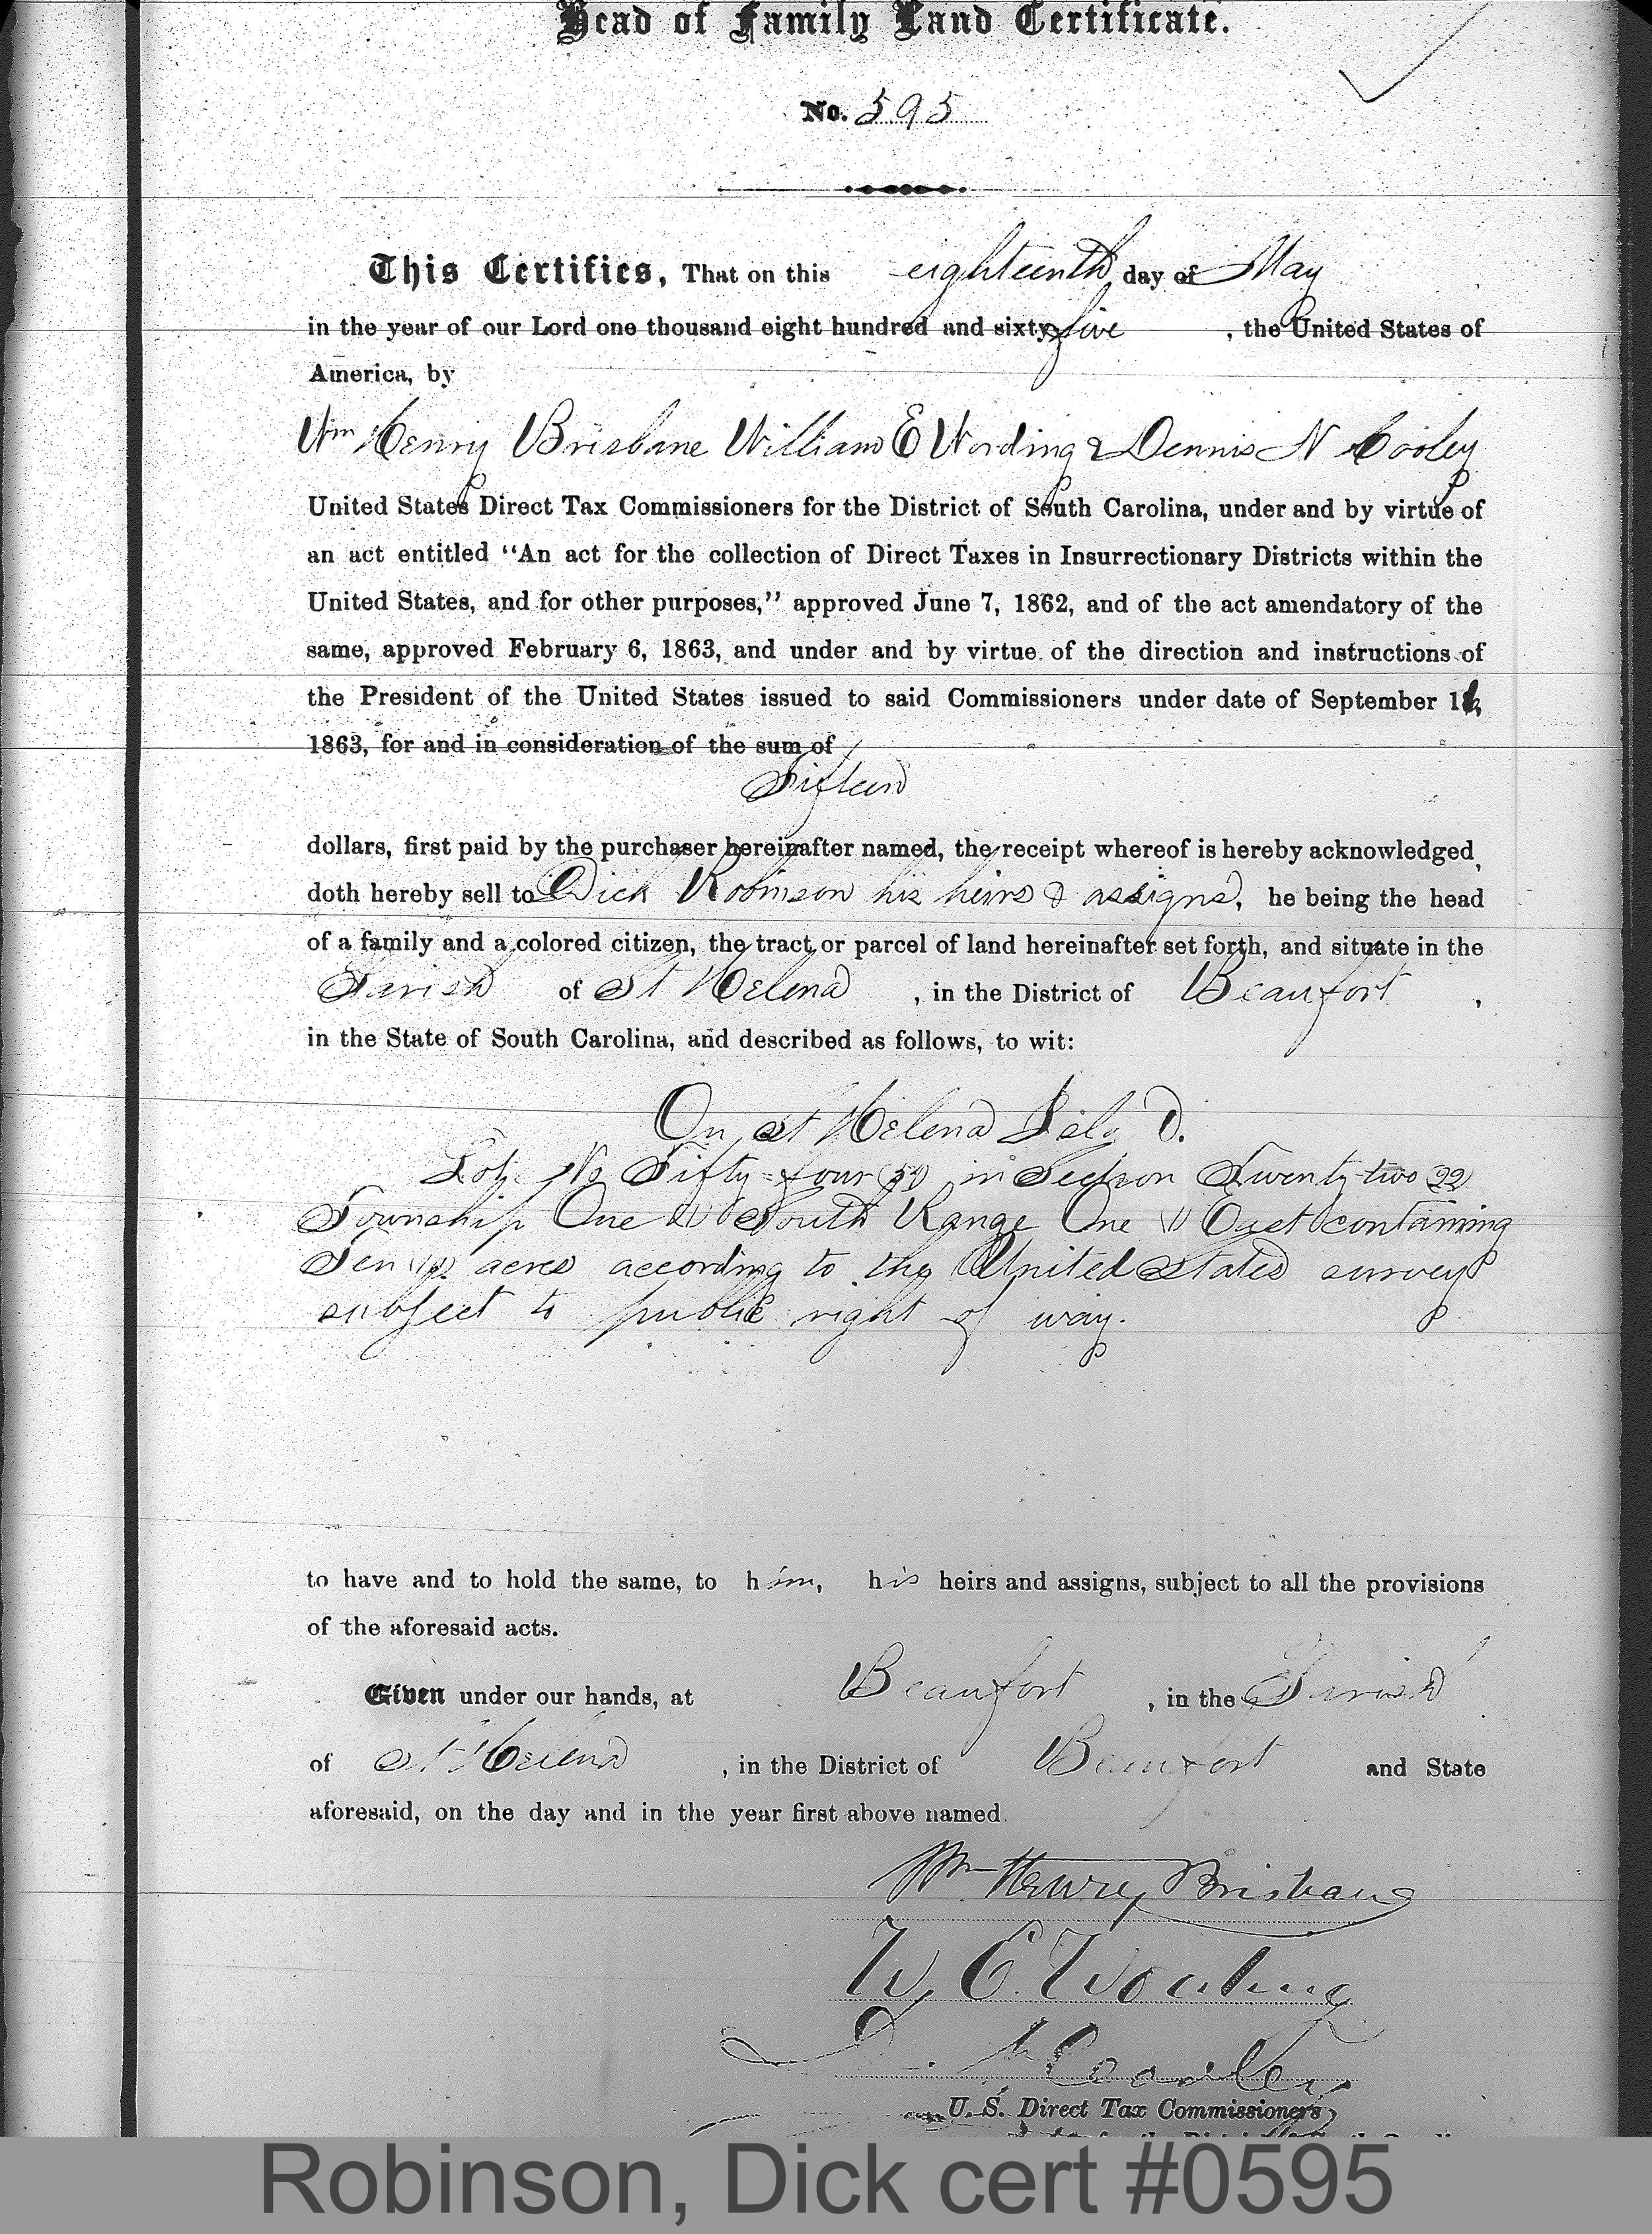 Head of Family Land Certificate.
No. 595
This Certifies, That on this eighteenth day of May
in the year of our Lord one thousand eight hundred and sixty five, the United States of
America, by
Wm Henry Brisbane William E Wording & Dennis N Cooley
United States Direct Tax Commissioners for the District of South Carolina, under and by virtue of
an act entitled "An act for the collection of Direct Taxes in Insurrectionary Districts within the
United States, and for other purposes," approved June 7, 1862, and of the act amendatory of the
same, approved February 6, 1863, and under and by virtue of the direction and instructions of
the President of the United States issued to said Commissioners under date of September
1863, for and in consideration of the sum of
Fifteen
dollars, first paid by the purchaser hereinafter named, the receipt whereof is hereby acknowledged,
doth hereby sell to Dick Robinson his heirs & assigns, he being the head
of a family and a colored citizen, the tract or parcel of land hereinafter set forth, and situate in the
Parish of St Helena, in the District of Beaufort,
in the State of South Carolina, and described as follows, to wit:
On St Helena Isld.
Lot No Fifty-four (54) in Section Twenty-two (22)
Township One (1) South Range One (1) East containing
Ten (10) acres according to the United States survey
subject to public right of way.
to have and to hold the same, to him, his heirs and assigns, subject to all the provisions
of the aforesaid acts.
Given under our hands, at Beaufort, in the Parish
of St Helena, in the District of Beaufort and State
aforesaid, on the day and in the year first above named.
Wm Henry Brisbane
W. E. Wording
D. N. Cooley
U. S. Direct Tax Commissioners,
Robinson, Dick cert #0595